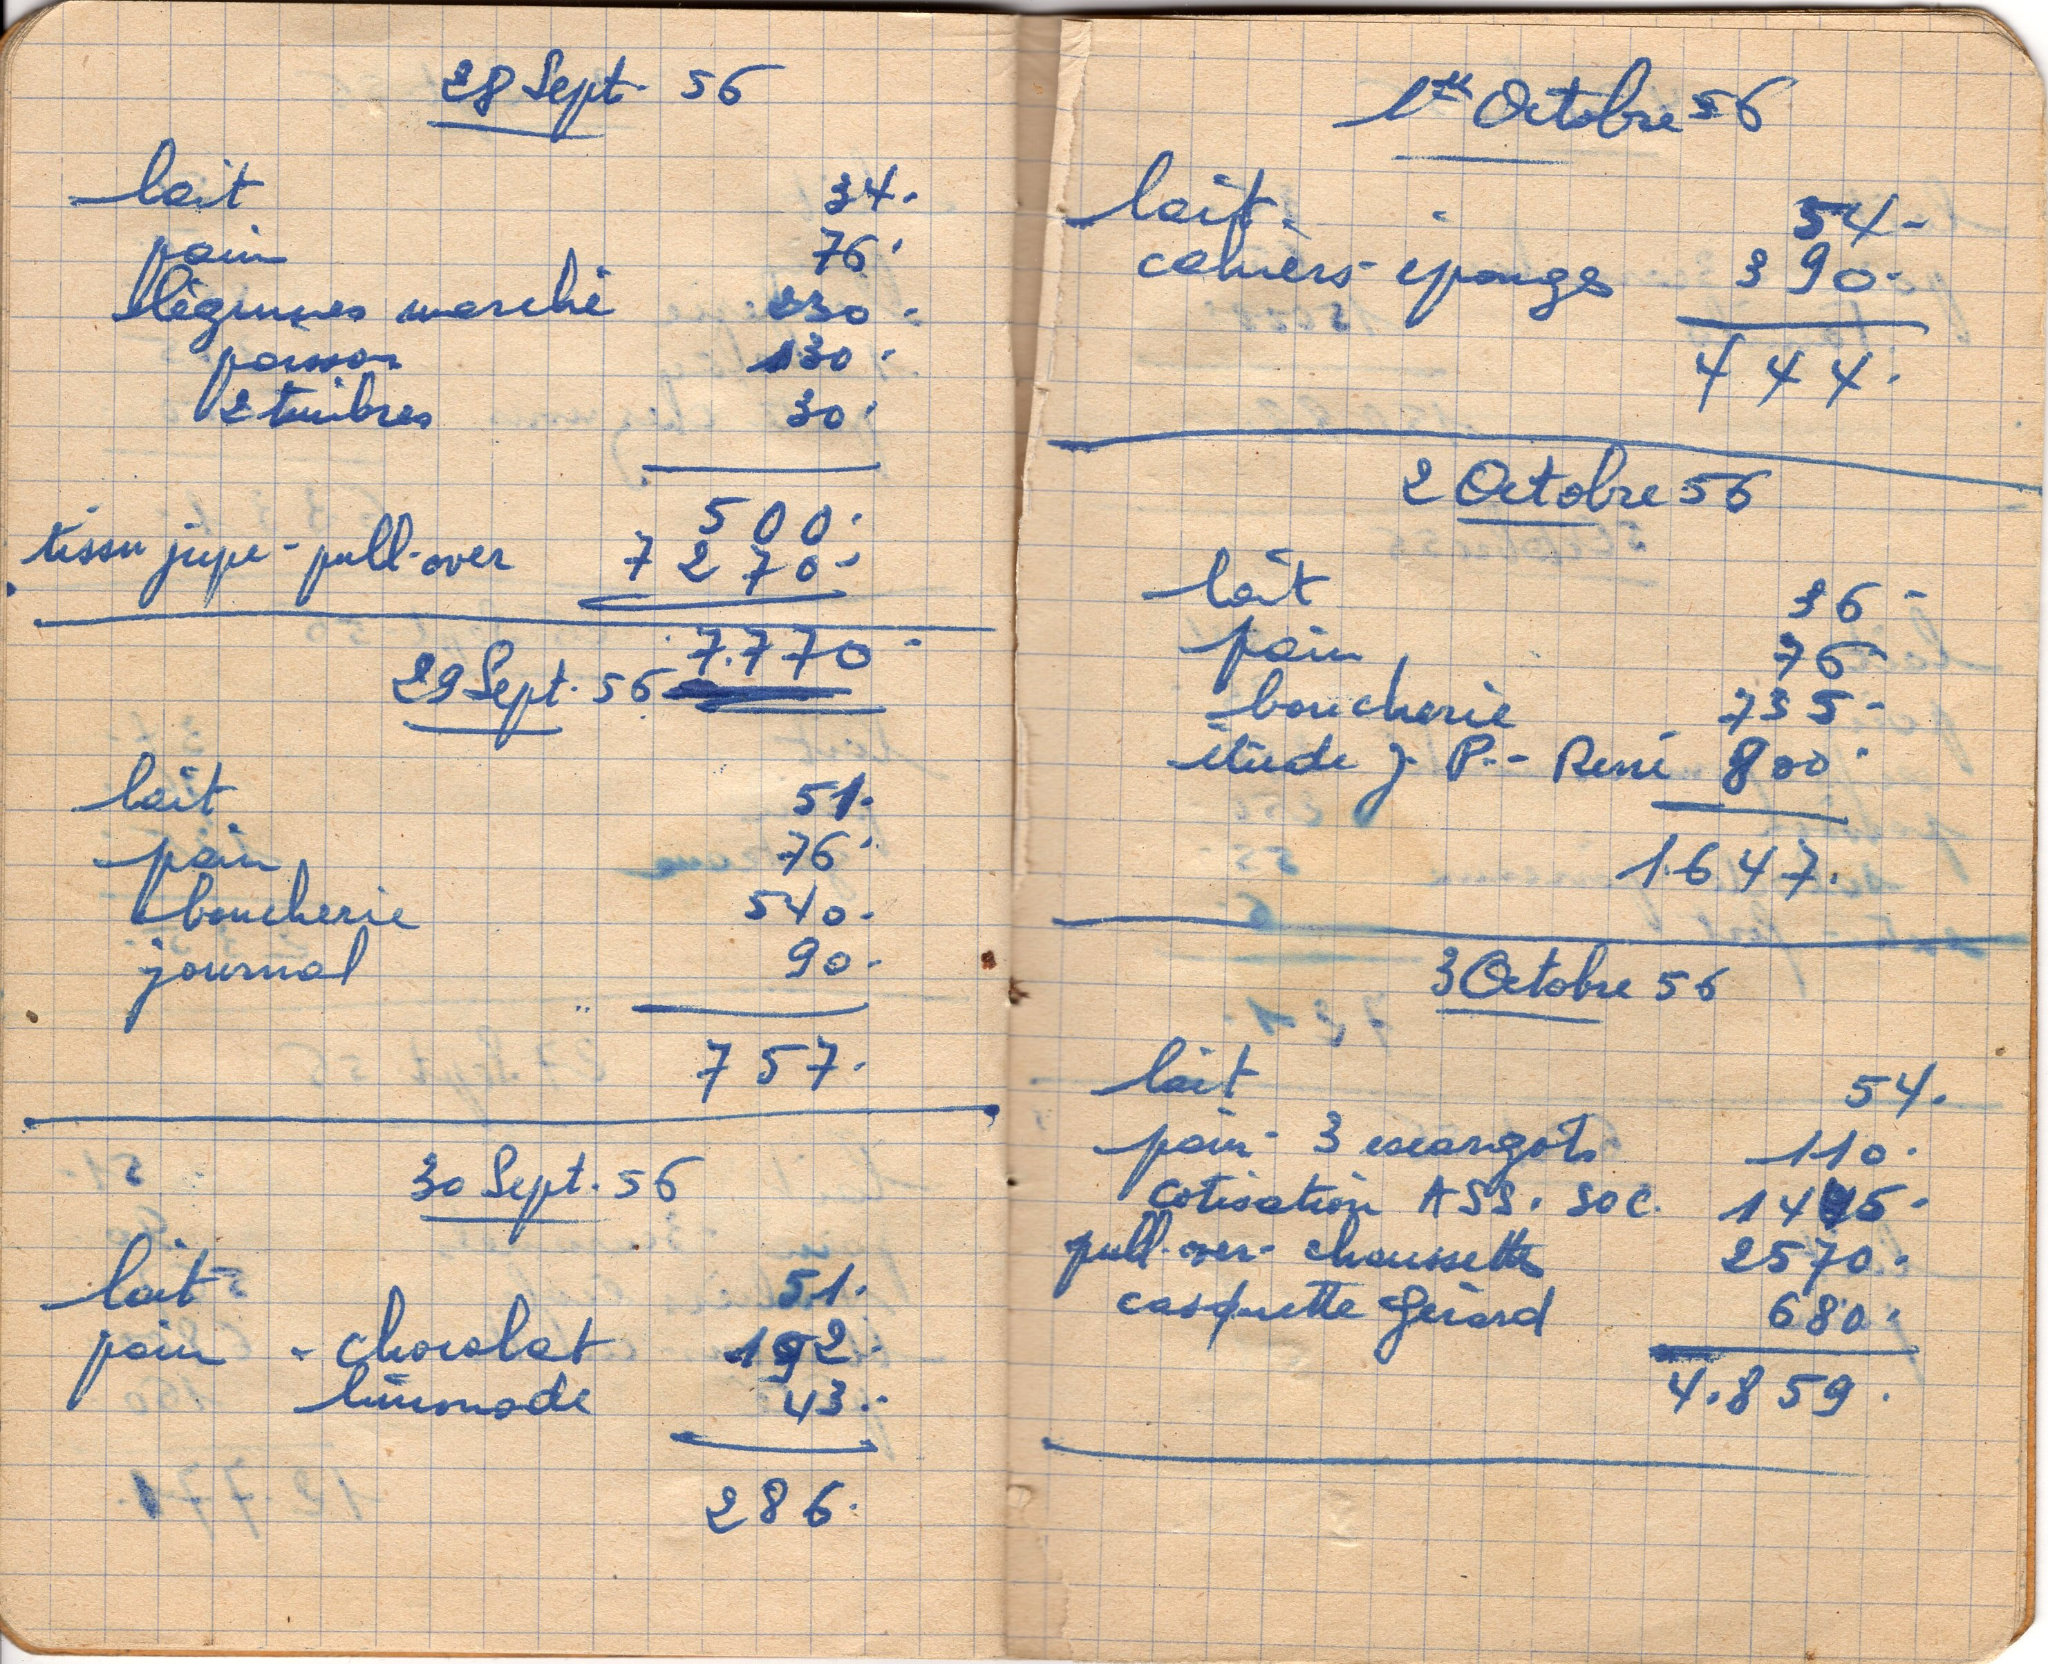 28 Sept. 56
lait 34.
pain 76.
légumes marché 230.
poisson 130.
2 timbres 30.
500.
tissu jupe - pull-over 7270.
7.770
29 Sept. 56
lait 51.
pain 76.
boucherie 540.
journal 90.
757.
30 Sept. 56
lait 51.
pain - chocolat 192.
limonade 43.
286.
1er Octobre 56
lait 54.
cahiers - éponges 390.
444.
2 Octobre 56
lait 36
pain 76
boucherie 735
étude J. P. - René 800
1.647.
3 Octobre 56
lait 54.
pain - 3 escargots 110.
cotisation ASS. SOC. 1445.
pull-over - chaussettes 2570.
casquette Gérard 680.
4.859.